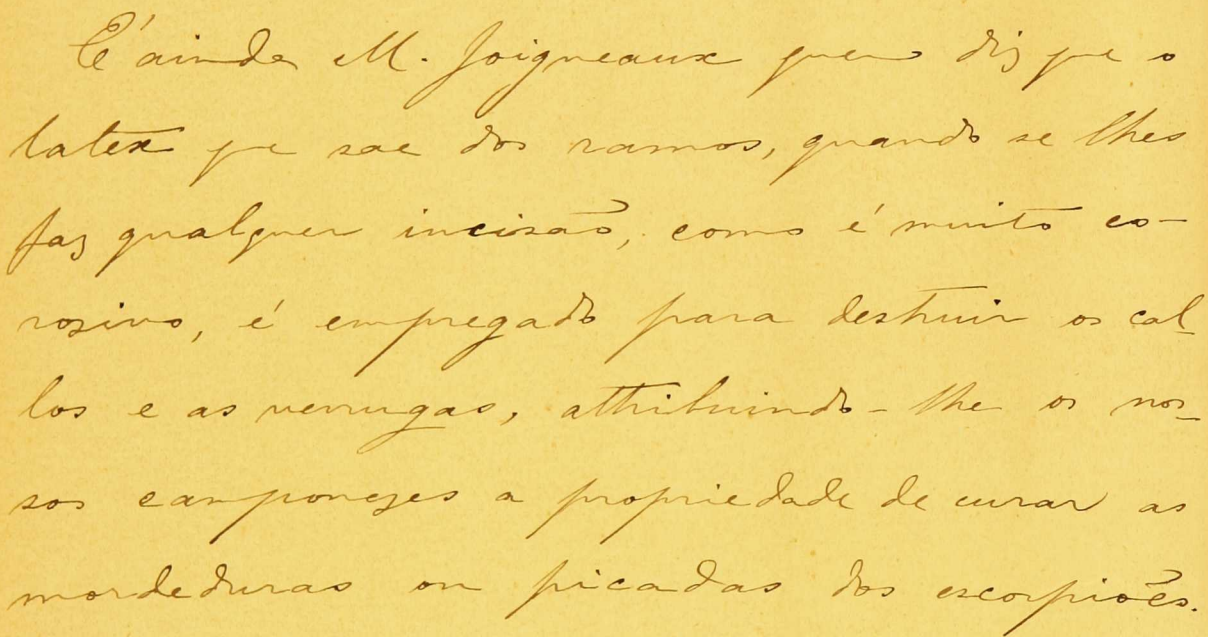 É ainda M. Joigneaux quem diz que o
latex que sae dos ramos, quando se lhes
faz qualquer incisão, como é muito co-
rosivo, é empregado para destruir os cal-
los e as verrugas, attribuindo-lhe os nos-
sos camponezes a propriedade de curar as
mordeduras ou picadas dos escorpiões.